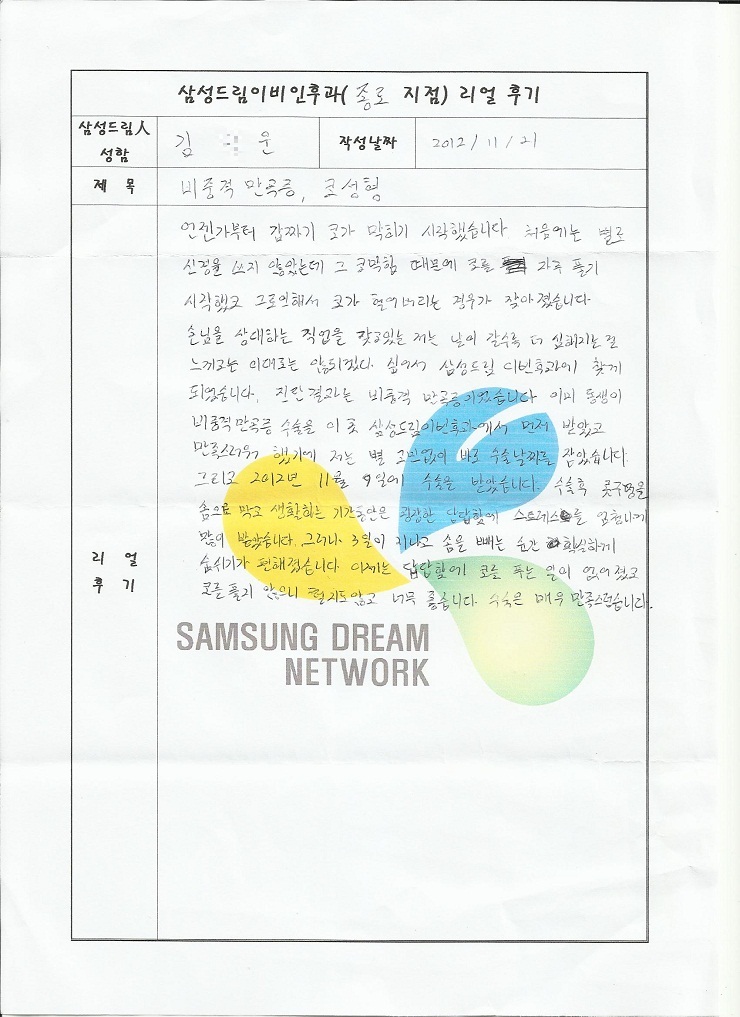 삼성드림이비인후과( 종로 지점) 리얼 후기
삼성드림人 성함
김 운
작성날짜
2012/11/21
제 목
비중격 만곡증, 코성형
언젠가부터 갑짜기 코가 막히기 시작했습니다 처음에는 별로
신경을 쓰지 않았는데 그 코막힘 때문에 코를 자주 풀기
시작했고 그로인해서 코가 헐어버리는 경우가 작아졌습니다.
손님을 상대하는 직업을 갖고있는 저는 날이 갈수록 더 심해지는걸
느끼고는 이대로는 않되겠다. 싶어서 삼성드림 이번후과에 찾게
되었습니다. 진단결과는 비중격 만곡증이였습니다 이미 동생이
비중격만곡증 수술을 이 곳 삼성드림이번후과에서 먼저 받았고
만족스러워 했기에 저는 별 고민없이 바로 수술날짜를 잡았습니다.
그리고 2012년 11월 9일에 수술을 받았습니다. 수술후 콧구멍을
솜으로 막고 생활하는 기간동안은 굉장한 답답함에 스트레스를 엄청나게
많이 받았습니다. 그러나 3일이 지나고 솜을 빼는 순간 확실하게
숨쉬기가 편해졌습니다 이제는 답답함에 코를 푸는 일이 없어졌고
코를 풀지 않으니 헐지도않고 너무 좋습니다. 수술은 매우 만족스럽습니다.
리 얼
후 기
SAMSUNG DREAM
NETWORK